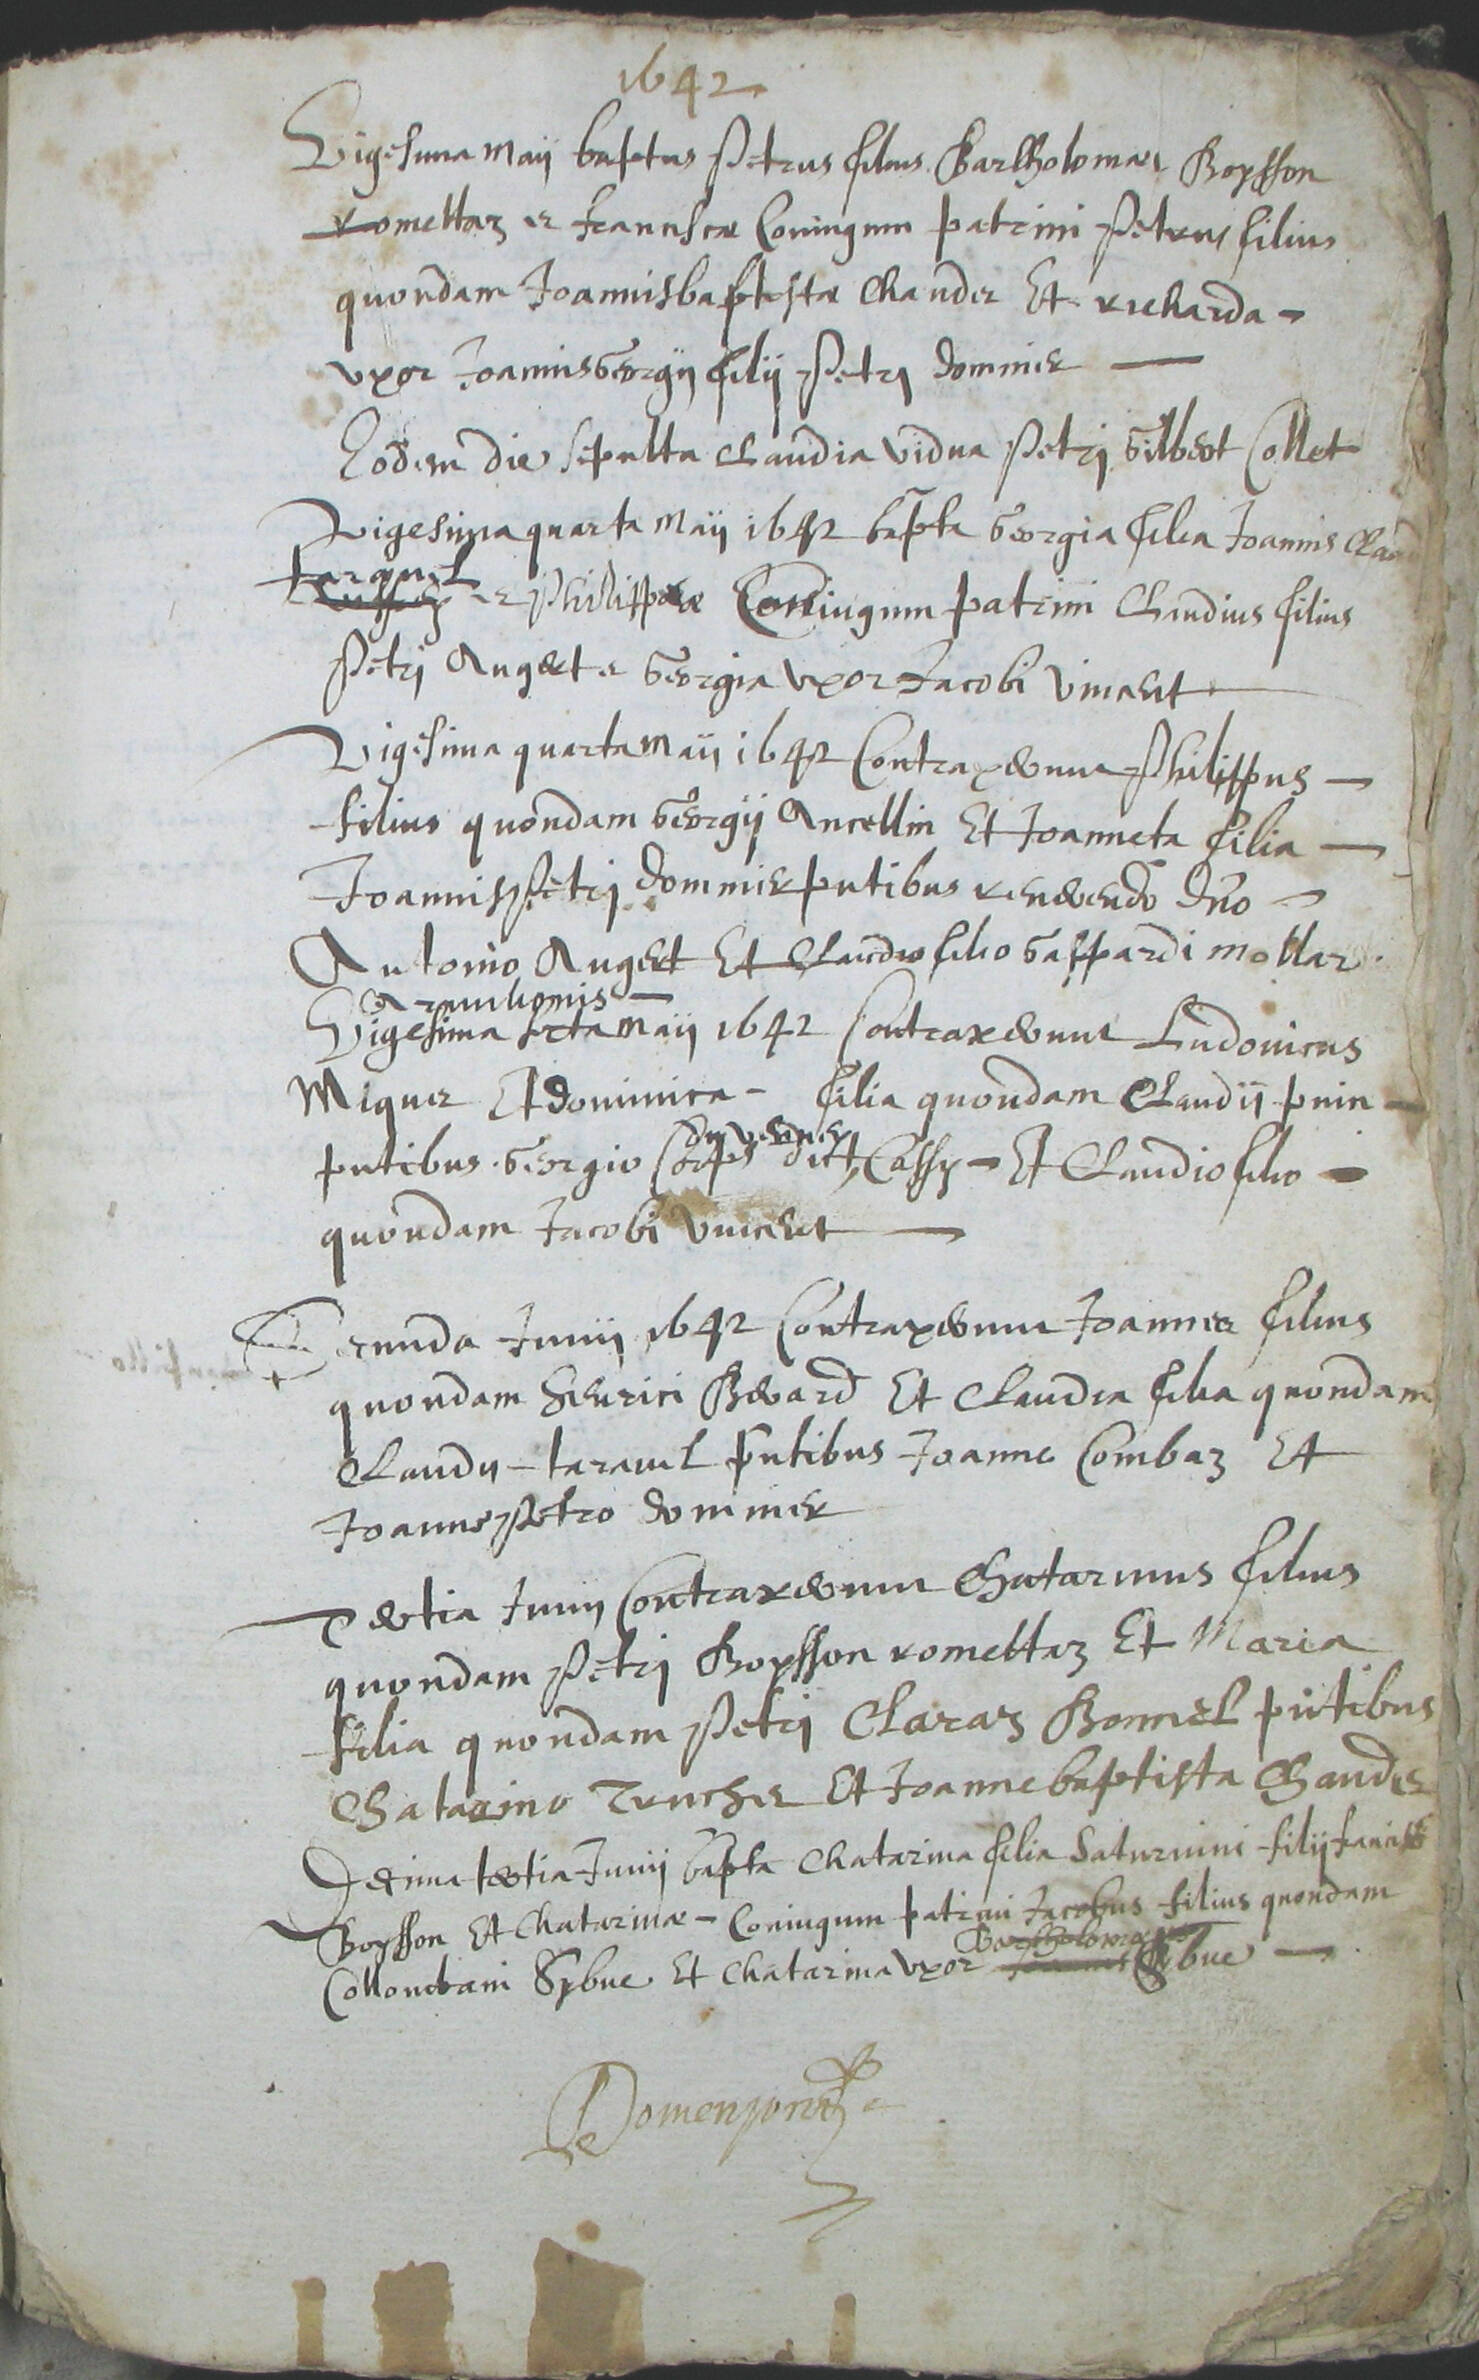 1642
Vigesima maij baptus Petrus filius Bartholomaei Boysson
romettaz et franciscae Coniugum patrini Petrus filius
quondam Joannisbaptistae Chaudet Et richarda -
uxor Joannisgeorgij filij Petrj dommier
Eodem die sepulta Claudia vidua Petrj gilbert Collet
Vigesimaquarta maij 1642 bapta georgia filia Joannis Claud
tarauel
et Philippae Coniugum patrini Claudius filius
Petrj Augert et georgia uxor Jacobi vincent
Vigesima quarta maij 1642 Contraxerunt Philippus -
filius quondam georgij Ancellin Et Joanneta filia -
JoannisPetrj dommier pntibus reuerendo dno -
Antonio Augert Et Claudio filio gaspardi mollar
Arauchonis -
Vigesima sexta maij 1642 Contraxerunt Ludouicus
Miquet Et dominica - filia quondam Claudij puin -
pntibus georgio Corps dict Cassy - Et Claudio filio -
quondam Jacobi vincent
Secunda Junij 1642 Contraxerunt Joannes filius
quondam henrici Berard Et Claudia filia quondam
Claudij - tarauel pntibus Joanne Combaz Et
JoannePetro dommier
Tertia Junij Contraxerunt Chatarinus filius
quondam Petrj Boysson romettaz Et Maria
filia quondam Petrj Claraz Bonnel pntibus
Chatarino Truchet Et Joannebaptista Chaudet
Decima tertia Junij bapta Chatarina filia Saturnini filij francisci
Boysson Et Chatarinae - Coniugum patrini Jacobus filius quondam
Bartholomaei
Collombani Sybue Et Chatarina uxor Joannis Sybue -